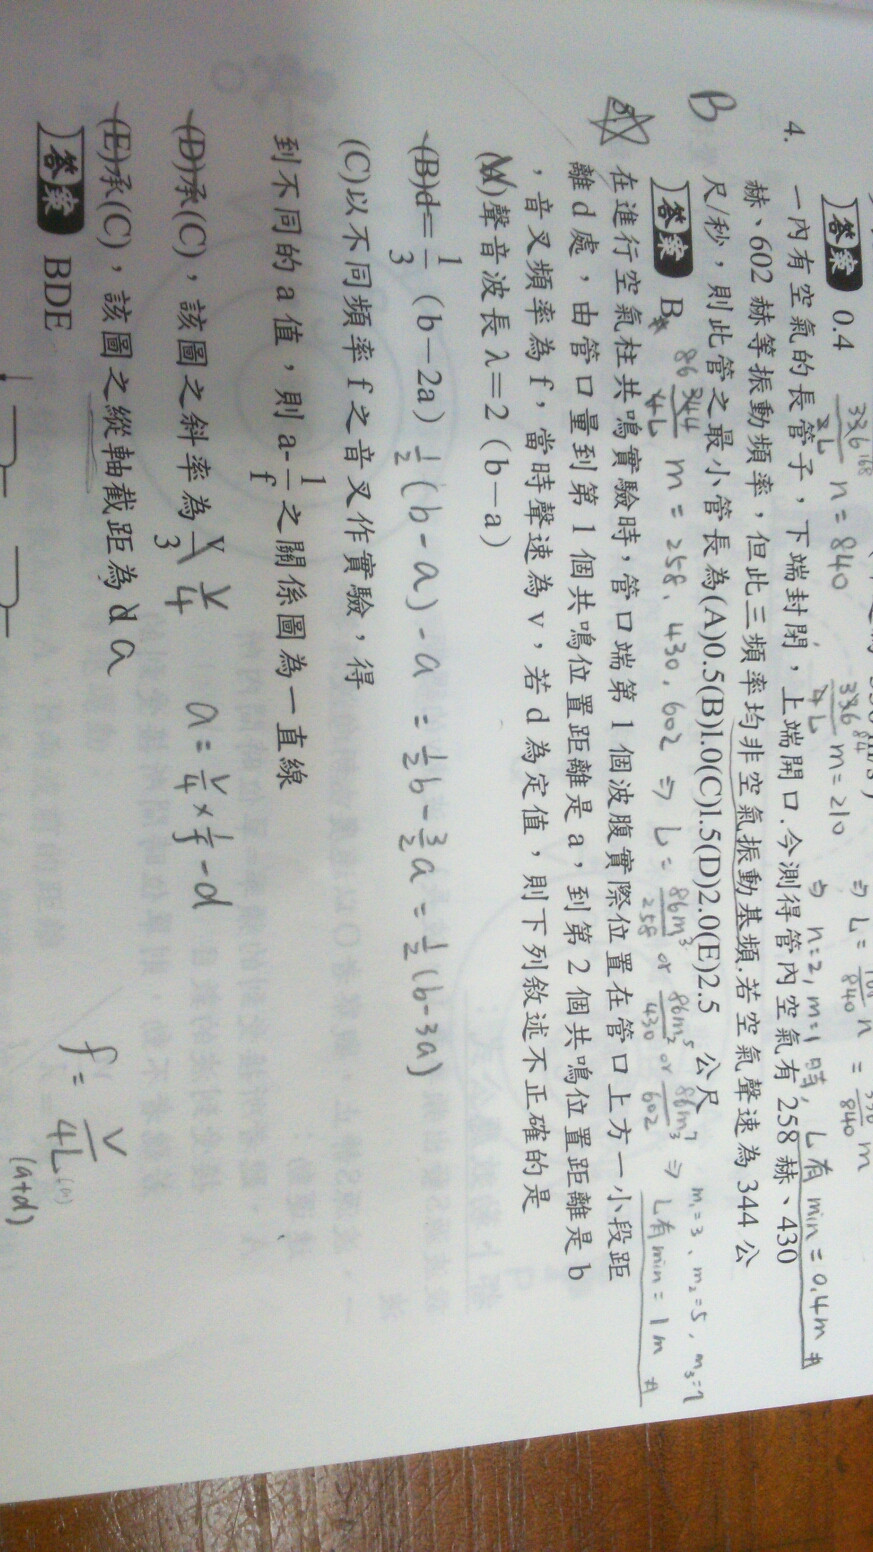 答案 0.4
336 168
2L n = 840
336 84
4L m = 210
⇒ n=2, m=1 時, L有 min = 0.4m #
4.
一內有空氣的長管子，下端封閉，上端開口.今測得管內空氣有 258 赫、430
赫、602 赫等振動頻率，但此三頻率均非空氣振動基頻.若空氣聲速為 344 公
尺/秒，則此管之最小管長為(A)0.5(B)1.0(C)1.5(D)2.0(E)2.5 公尺
B
答案 B
86 344
4L m = 258、430、602 ⇒ L = 86m/258 or 86m/430 or 86m/602 ⇒ L有 min = 1m #
m₁=3、m₂=5, m₃=7
5.
在進行空氣柱共鳴實驗時，管口端第 1 個波腹實際位置在管口上方一小段距
離 d 處，由管口量到第 1 個共鳴位置距離是 a，到第 2 個共鳴位置距離是 b
，音叉頻率為 f，當時聲速為 v，若 d 為定值，則下列敘述不正確的是
(A)聲音波長 λ＝2（b－a）
(B)d＝1/3（b－2a） 1/2(b - a) - a = 1/2b - 3/2a = 1/2(b-3a)
(C)以不同頻率 f 之音叉作實驗，得
到不同的 a 值，則 a-1/f 之關係圖為一直線
(D)承(C)，該圖之斜率為 v/3 v/4 a = v/4 × 1/f - d
(E)承(C)，該圖之縱軸截距為 d a
f = v/4L
(a+d)
答案 BDE